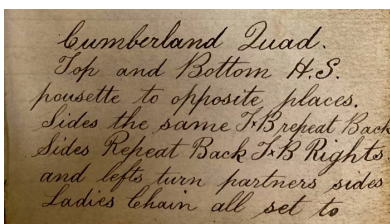 Cumberland Quad.
Top and Bottom H.S.
pousette to opposite places.
Sides the same T&B repeat Back
Sides Repeat Back T&B Rights
and lefts turn partners sides
Ladies Chain all set to